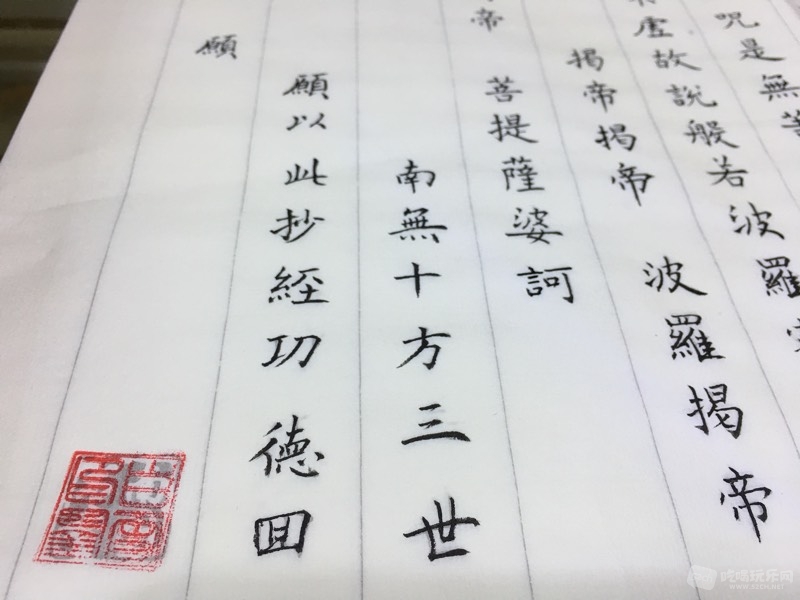 咒是無
虛故說般若波羅
揭帝揭帝 波羅揭帝
帝 菩提薩婆訶
南無十方三世
願以此抄經功德回
願